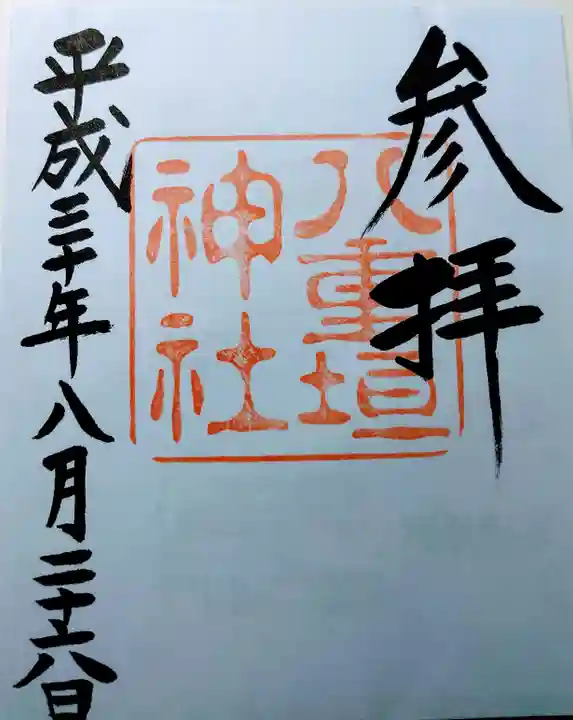 参拝
八重垣
神社
平成三十年八月二十六日